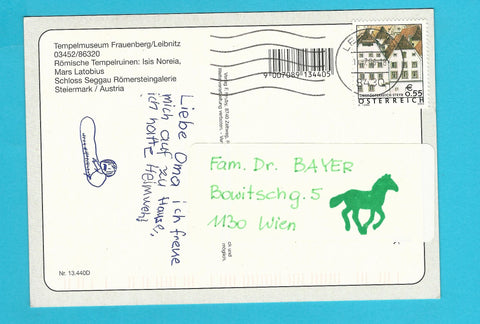 Tempelmuseum Frauenberg/Leibnitz
03452/86320
Römische Tempelruinen: Isis Noreia,
Mars Latobius
Schloss Seggau Römersteingalerie
Steiermark / Austria
9 007089 134405
€ 0.55
ÖSTERREICH
Liebe Oma ich freue
mich auf zu Hause,
ich hatte Heimweh!
Fam. Dr. BAYER
Bowitschg. 5
1130 Wien
Nr. 13.440D